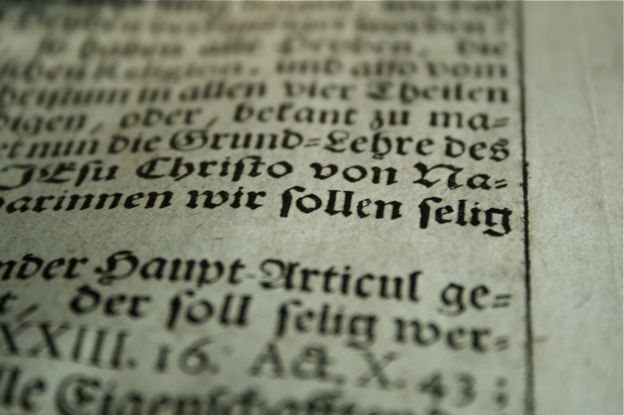 so haben alle Heyden, die
schen Religion, und also vom
in allen vier Theilen
digen, oder, bekant zu ma⸗
et nun die Grund⸗Lehre des
JEsu Christo von Na⸗
darinnen wir sollen selig
nder Haupt-Articul ge⸗
t, der soll selig wer⸗
XXIII. 16. Act. X. 43 ;
lle Eigenschafften